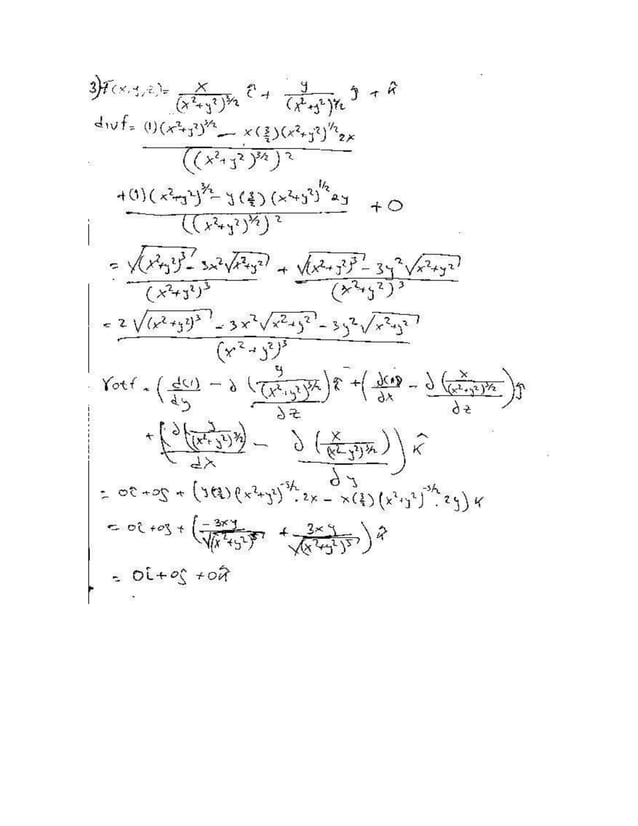 3) F(x,y,z)= x/(x²+y²)^3/2 î + y/(x²+y²)^3/2 ĵ + k̂
divf= (1)(x²+y²)^3/2 - x(3/2)(x²+y²)^1/2 2x / ((x²+y²)^3/2)²
+(1)(x²+y²)^3/2 - y(3/2)(x²+y²)^1/2 2y / ((x²+y²)^3/2)² + 0
= √(x²+y²)³ - 3x²√x²+y² / (x²+y²)³ + √(x²+y²)³ - 3y²√x²+y² / (x²+y²)³
= 2√(x²+y²)³ - 3x²√x²+y² - 3y²√x²+y² / (x²+y²)³
rotf = (d(1)/dy - ∂(y/(x²+y²)^3/2)/∂z) î + (d(1)/dx - ∂(x/(x²+y²)^3/2)/∂z) ĵ
+ (∂(y/(x²+y²)^3/2)/dx - ∂(x/(x²+y²)^3/2)/dy) k̂
= 0î + 0ĵ + (y(3/2)(x²+y²)^-5/2 · 2x - x(3/2)(x²+y²)^-5/2 · 2y) k
= 0î + 0ĵ + (-3xy/√(x²+y²)^5 + 3xy/√(x²+y²)^5) k̂
= 0î + 0ĵ + 0k̂